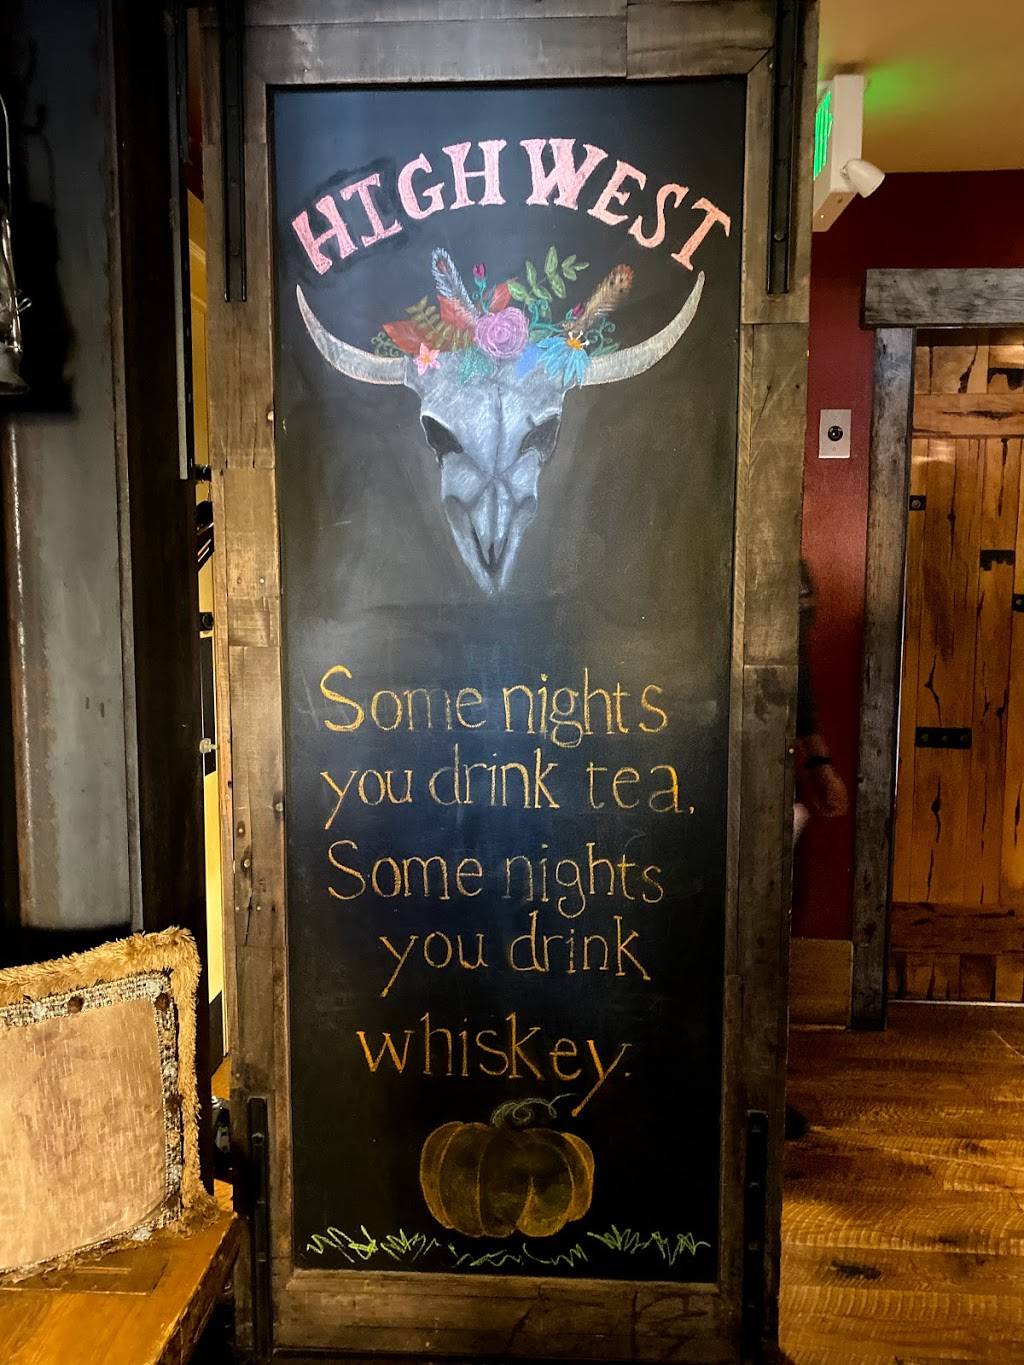 HIGH WEST
Some nights
you drink tea.
Some nights
you drink
whiskey.